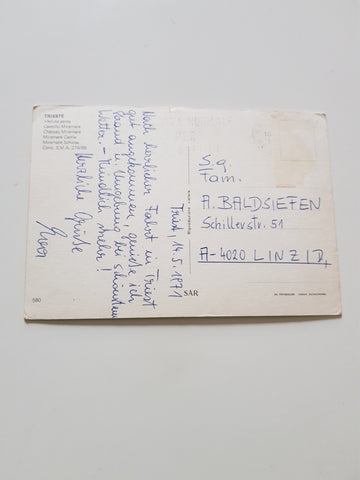 TRIESTE
Veduta aerea
Castello Miramare
Château Miramare
Miramare Castle
Miramare Schloss
Triest, 14.5.1971
Nach herrlicher Fahrt in Triest
gut angekommen, genieße ich
Strand u. Umgebung bei schönstem
Wetter. – Mündlich mehr!
Herzliche Grüße
S.g.
Fam.
A. BALDSIEFEN
Schillerstr. 51
A-4020 LINZ/D,
SAR
580